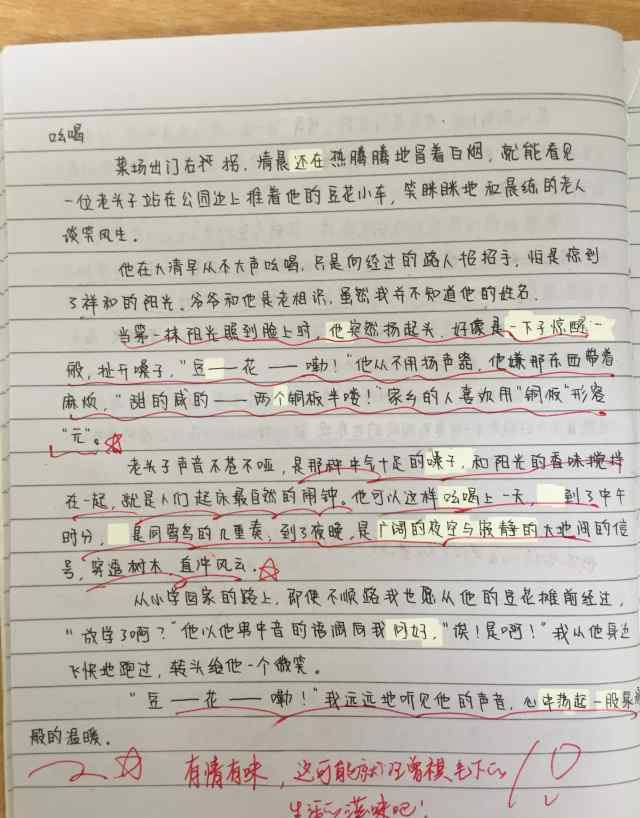 吆喝
菜场出门右拐，清晨还在热腾腾地冒着白烟，就能看见
一位老头子站在公园边上推着他的豆花小车，笑眯眯地和晨练的老人
谈笑风生。
他在大清早从不大声吆喝，只是向经过的路人招招手，怕是惊到
了祥和的阳光。爷爷和他是老相识，虽然我并不知道他的姓名．
当第一抹阳光照到脸上时，他突然扬起头，好像是一下子惊醒一
般，扯开嗓子，“豆——花——嘞！”他从不用扬声器，他嫌那东西带着
麻烦，“甜的咸的——两个铜板半喽！”家乡的人喜欢用“铜板”形容
“元”。
老头子声音不苍不哑，是那种中气十足的嗓子，和阳光的香味搅拌
在一起，就是人们起床最自然的闹钟。他可以这样吆喝上一天，到了中午
时分，是同莺鸟的几重奏，到了夜晚，是广阔的夜空与寂静的大地间的信
号，穿透树木，直冲风云．
从小学回家的路上，即使不顺路我也愿从他的豆花摊前经过，
“放学了啊？”他以他男中音的语调向我问好，“诶！是啊！”我从他身边
飞快地跑过，转头给他一个微笑。
“豆——花——嘞！”我远远地听见他的声音，心中荡起一股
般的温暖．
有情有味，这可能就汪曾祺笔下的
生活的滋味吧！
10